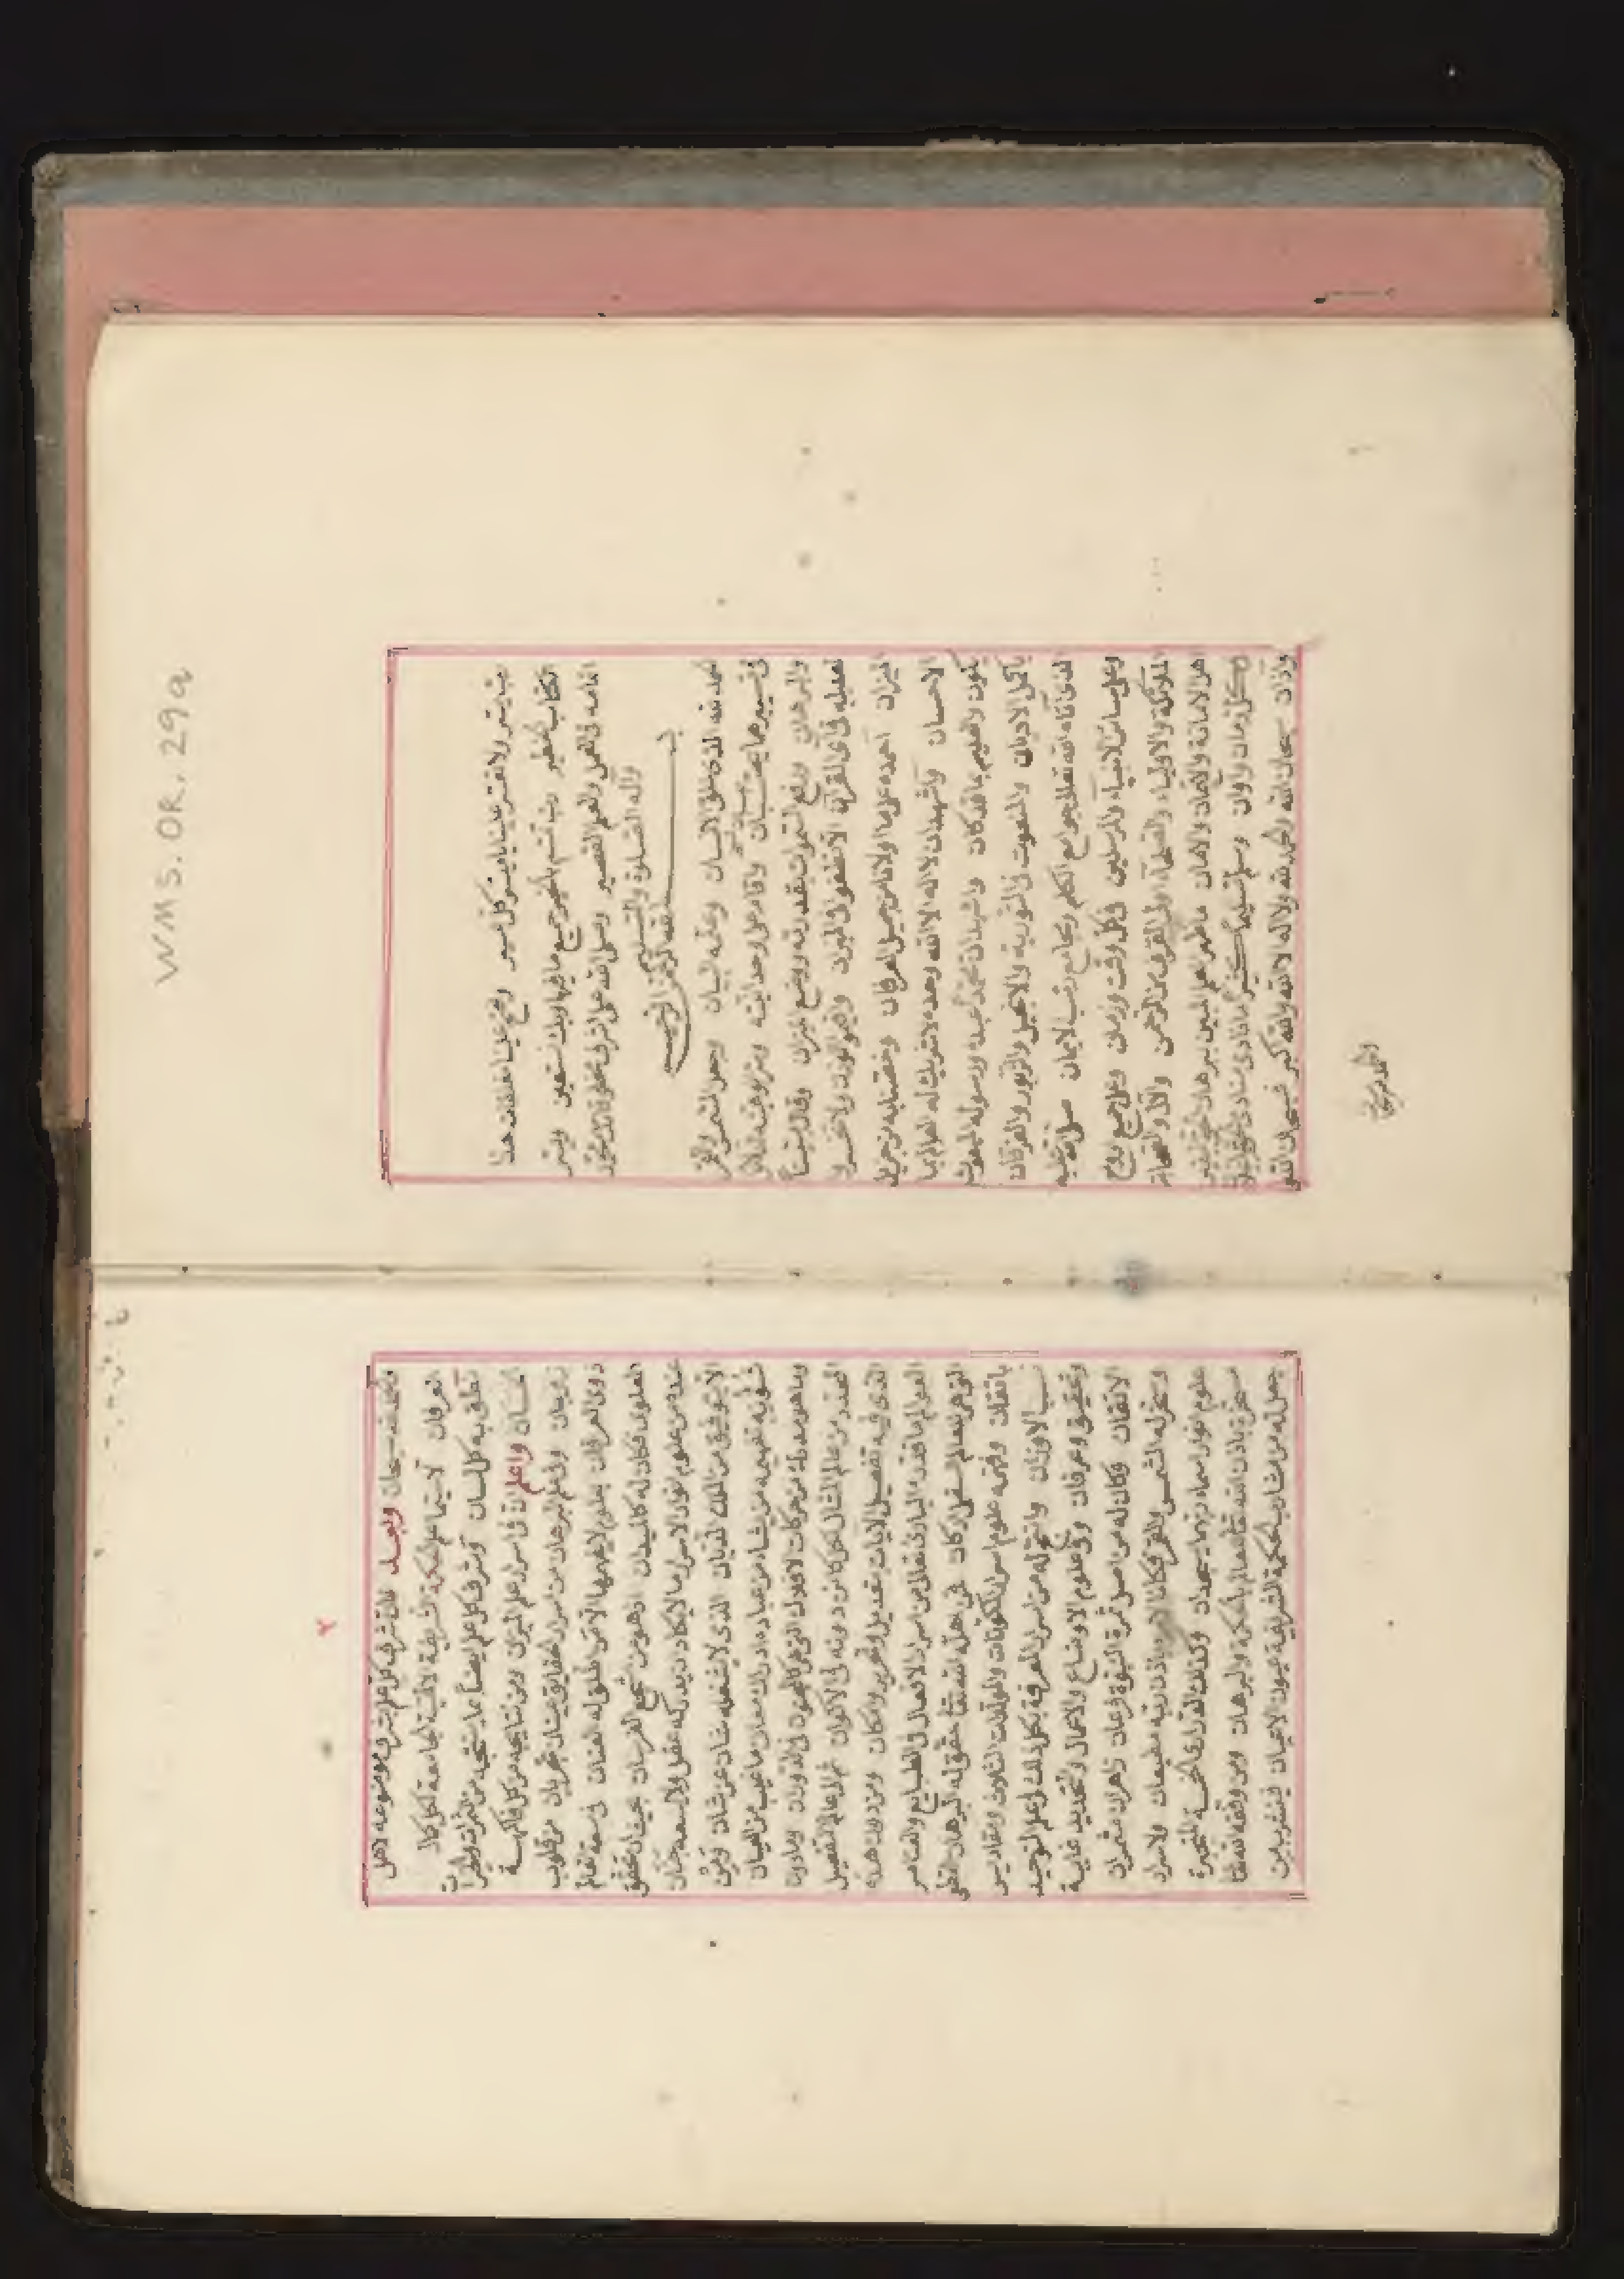 WMS. OR. 29a
رب يسر ولا تعسر علينا يا ميسر كل عسير وافتح علينا مغلقات هذا
الكتاب الخطير رب تمم بالخير جميع ما فيها وبك نستعين ويسر
اتمامه في العمل والعلم القصير وصلى الله على اشرف مخلوقاته محمد
وآله الصلوة والتسليم
بسم الله الرحمن الرحيم
الحمد لله الذي خلق الانسان وعلمه البيان وجعل الشمس والقمر
في سيرهما بحسبان واقام على وحدانيته وربوبيته الدلائل
والبرهان ورفع السموات بقدرته ووضع الميزان وقال تنبيهاً
لعقله في آي القرآن الا تطغوا في الميزان واقيموا الوزن ولا تخسروا
الميزان احمده على ما اولانا من جميل العرفان وخصنا به من جزيل
الاحسان واشهد ان لا اله الا الله وحده لا شريك له العالم بما
يكون والعليم بما قد كان واشهد ان محمداً عبده ورسوله المبعوث
بأكمل الاديان والمنعوت في التورية والانجيل والزبور والفرقان
الذي آتاه الله تعالى جوامع الكلم ومجامع رتب الايمان صلى الله عليه
وعلى سائر الانبياء والمرسلين في كل وقت وزمان وعلى جميع
الملائكة والاولياء والصلحاء اولى القرب من الرحمن والآل والصحابة
اهل الامانة والايمان والامان ما ظهر العلم المبين ببرهان
كل زمان وأوان وسلم تسليماً كثيراً ما نادى منادى
وآذان سبحان الله والحمد لله ولا اله الا الله والله اكبر فسبحان الله
والحمد سبحان
٢
والحمد لله سبحان وبعد فان شرف كل علم بشرف موضوعه لاهل
العرفان لا سيما علم الحكمة الشريفة الالهية الجامعة لكل كمال
نطق به كل لسان وشرف كل علم ايضاً بما ينتجه من الثمرات
الحسان واعلم ان في اسرار علم الميزان ومن نتايجه من كل فاكهة
زوجان وفي علم البرهان من اسرار الحقايق عينان تجريان من قلوب
ذوي العرفان بعلوم لا يفهمها الا من اطلق له العنان في سعة عالم
العلوي فكان له كالميدان وهو من اشجع الفرسان بحيث ان تحقق
عنده من علوم انوار الاسرار ما لا يكاد يدركه عقل ولا يسعه جنان
الا بتوفيق من الملك الديان الذي لا يشغله شان عن شان ومن
شؤنه تفهيمه من يشاء من عباده ادراك معان ما غيب من العيان
وما هو مدرك من حركات الافلاك التي هي كالعيون في الدوران وما دونها
العنصر من عالم المثال الى كائن دونه في الاكوان ثم العالم التفصيل
الذي فيه تفصيل الآيات بتعديل وتحرير وامكان ومن دون هذه
العوالم ما قدره الباري تعالى من اسرار الافعال في الطبايع والعناصر
التي هي للعالم السفلي اركان فمن اهله الله تعالى حقق له البرهان العقلي
باتقان وفهمه علوم اسرار المكونات والمولدات الثلاث ومقاديرها
نسب الاوزان وانتج له من اسرار المعرفة بكل ذلك علم التوحيد
وتحقيق وعرفان وفي علوم الاوضاع والاعمال والتحديد غاية
الاتقان وكان له من اصل ثمرة النبوة فرعان زاهران مثمران
وسخر له الشمس والقمر فكانا باذن ربه مطيعان والاسرار
علوم نجوم سماء يسجدان وكذلك الدراري الخمسة المتحيرة
مسخرة باذن الله تعالى لعالم الحكمة والبرهان ومن وفقه الله تعالى
جعل له من مشارب الحكمة الشريفة عيون الاعيان فيشرب من